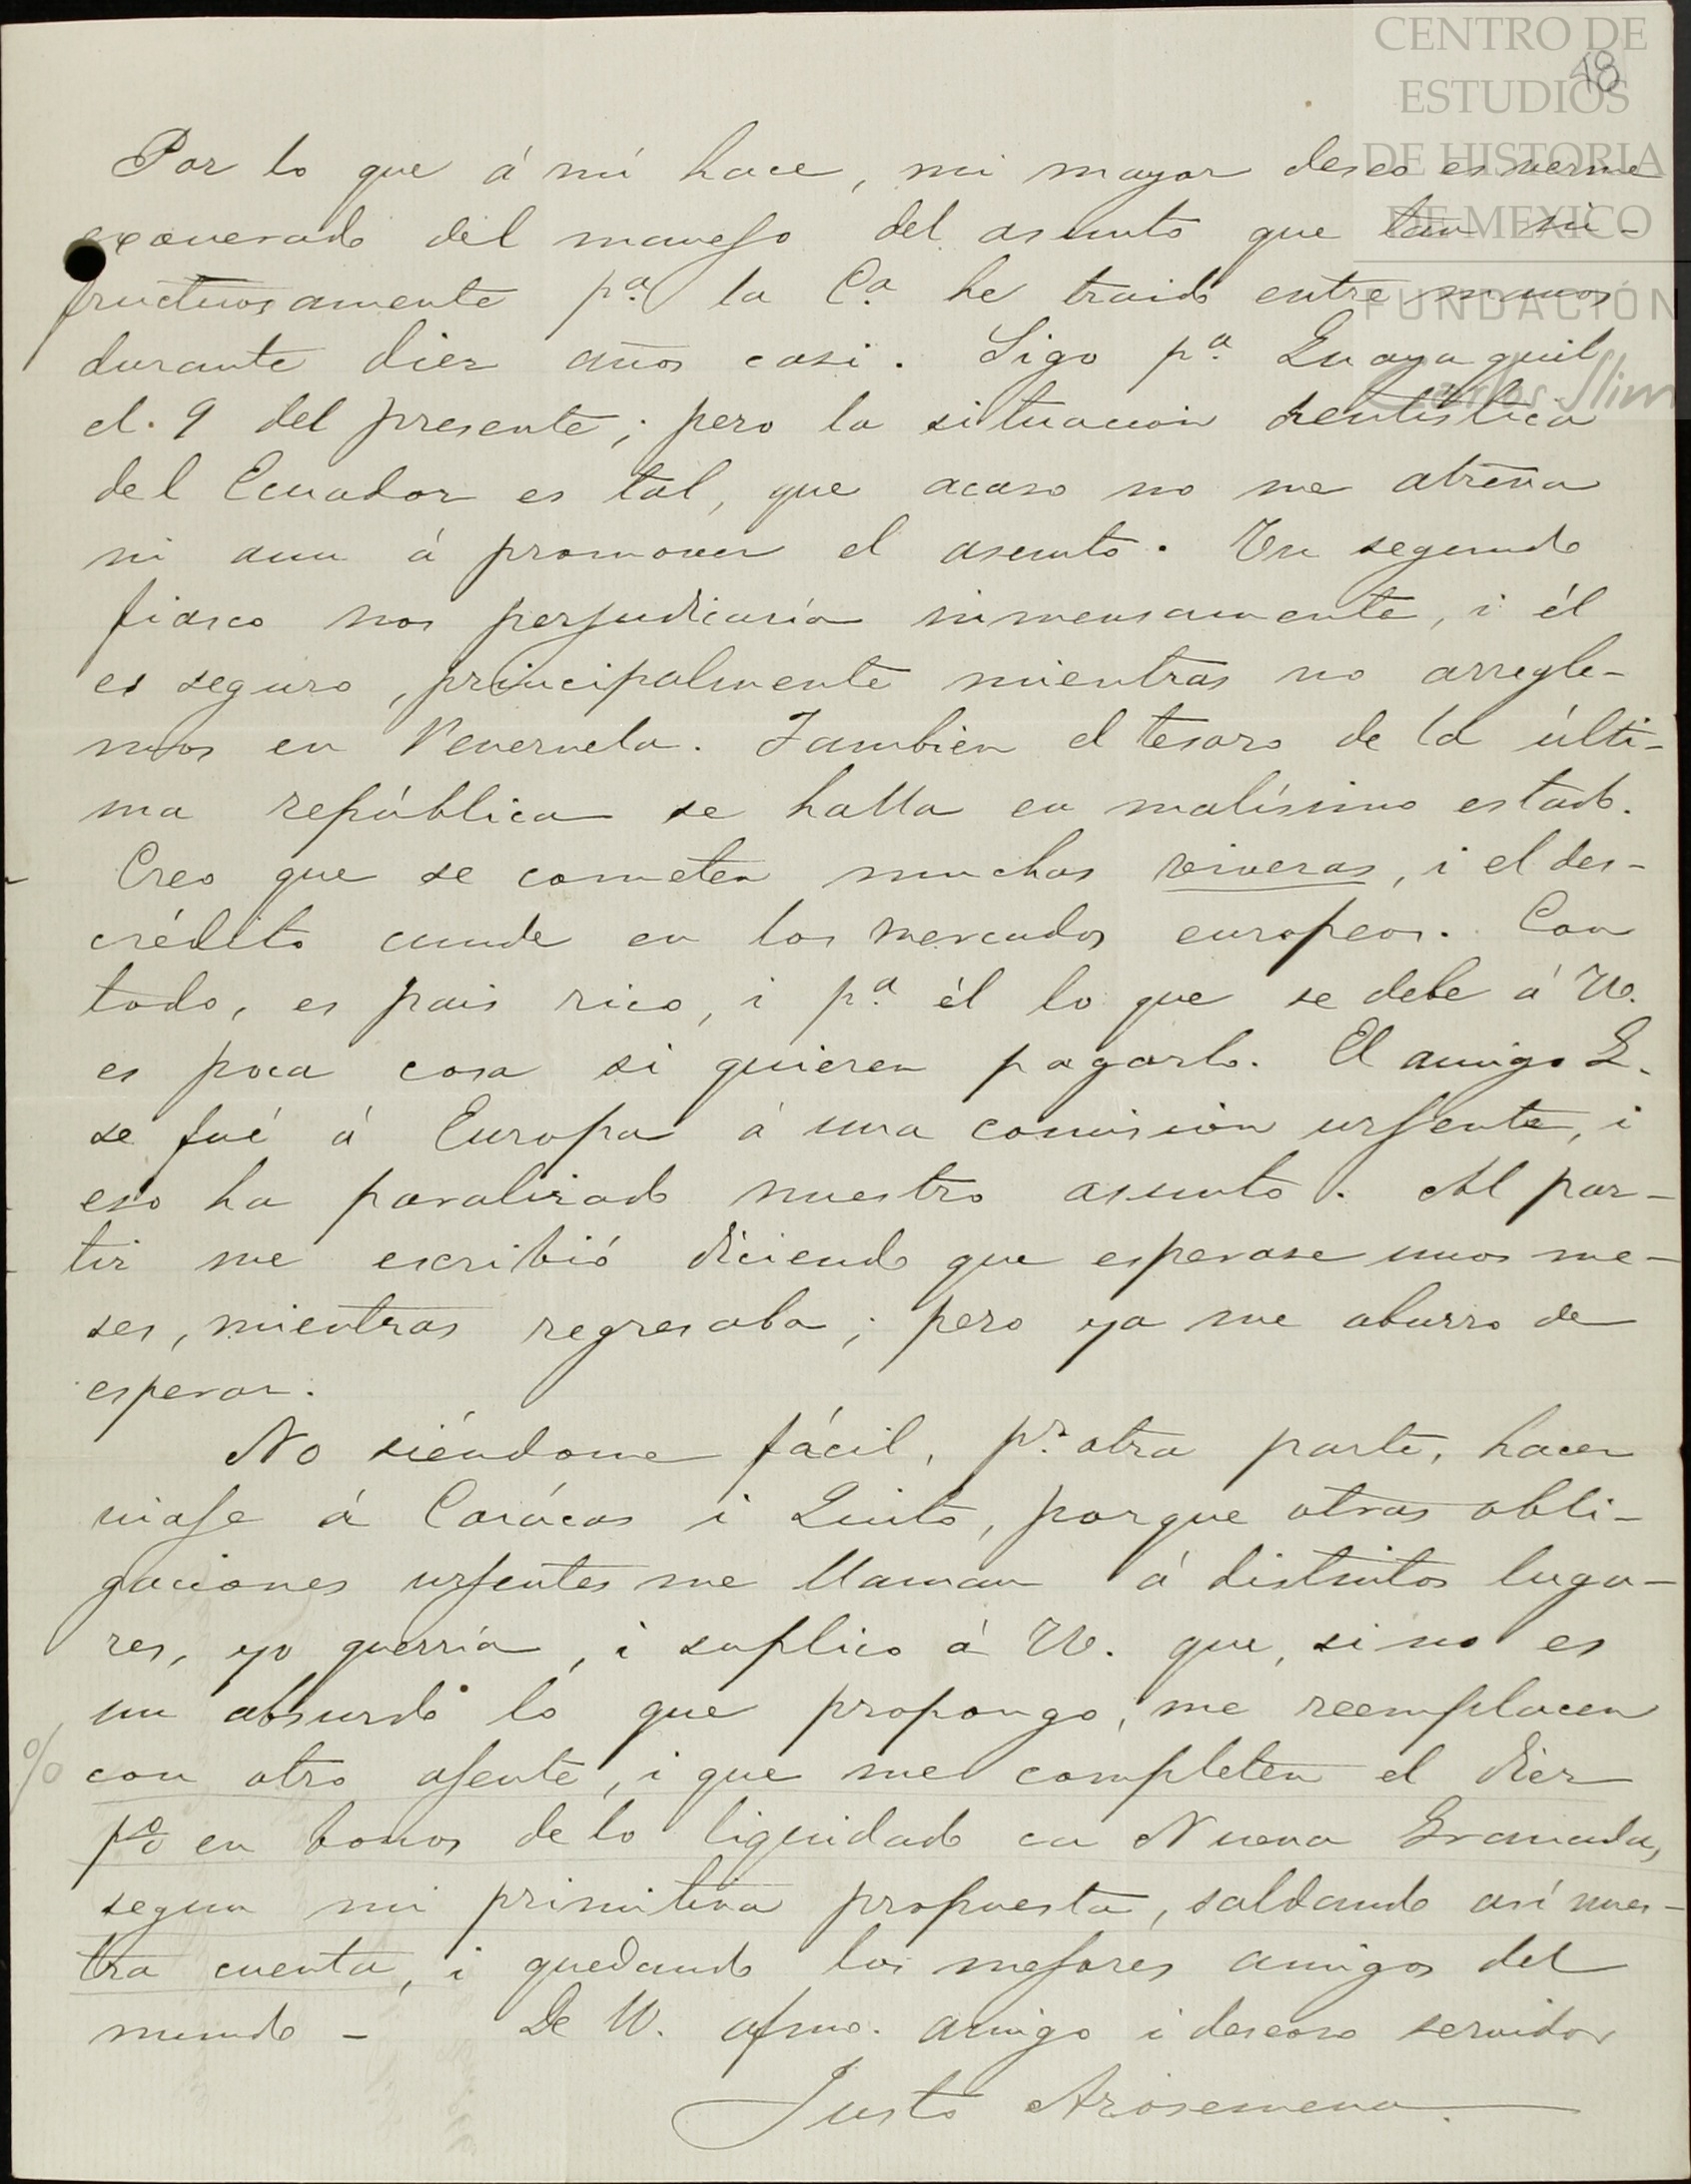 CENTRO DE
ESTUDIOS
DE HISTORIA
DE MEXICO
FUNDACIÓN
Carlos Slim
48
Por lo que á mí hace, mi mayor deseo es verme
exonerado del manejo del asunto que tan in-
fructuosamente pª la Cª he traido entre manos
durante diez años casi. Sigo pª Guayaquil
el 9 del presente; pero la situacion rentística
del Ecuador es tal, que acaso no me atreva
ni aun á promover el asunto. Un segundo
fiasco nos perjudicaría inmensamente, i él
es seguro, principalmente mientras no arregle-
mos en Venezuela. Tambien el tesoro de la últi-
ma república se halla en malísimo estado.
Creo que se cometen muchas , i el des-
crédito cunde en los mercados europeos. Con
todo, es pais rico, i pª él lo que se debe á W.
es poca cosa si quieren pagarlo. El amigo G.
se fué á Europa á una comision urjente, i
eso ha paralizado nuestro asunto. Al par-
tir me escribió diciendo que esperase unos me-
ses, mientras regresaba; pero ya me aburro de
esperar.
No siéndome fácil, pr. otra parte, hacer
viaje á Carácas i Quito, porque otras obli-
gaciones urjentes me llaman á distintos luga-
res, yo querría, i suplico á W. que, si no es
un absurdo lo que propongo, me reemplacen
% con otro ajente, i que me completen el diez
p% en bonos de lo liquidado en Nueva Granada,
segun mi primitiva propuesta, saldando así nues-
tra cuenta, i quedando los mejores amigos del
mundo - De W. afmo. amigo i deseoso servidor
Justo Arosemena